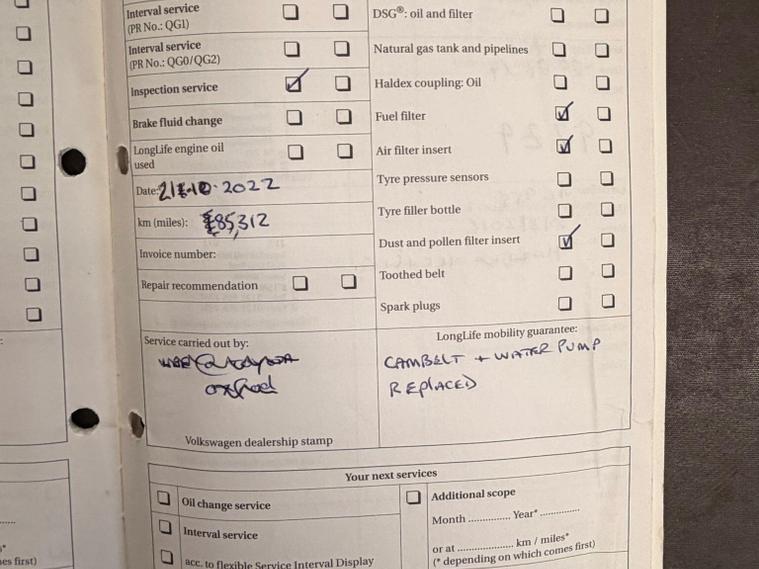 Interval service
(PR No.: QG1)
Interval service
(PR No.: QG0/QG2)
Inspection service
Brake fluid change
LongLife engine oil
used
Date: 21.10.2022
km (miles): 85,312
Invoice number:
Repair recommendation
DSG®: oil and filter
Natural gas tank and pipelines
Haldex coupling: Oil
Fuel filter
Air filter insert
Tyre pressure sensors
Tyre filler bottle
Dust and pollen filter insert
Toothed belt
Spark plugs
Service carried out by:
oxford
Volkswagen dealership stamp
LongLife mobility guarantee:
CAMBELT + WATER PUMP
REPLACED
Your next services
Oil change service
Interval service
acc. to flexible Service Interval Display
Additional scope
Month .............. Year* .............
or at .................... km / miles*
(* depending on which comes first)
es first)